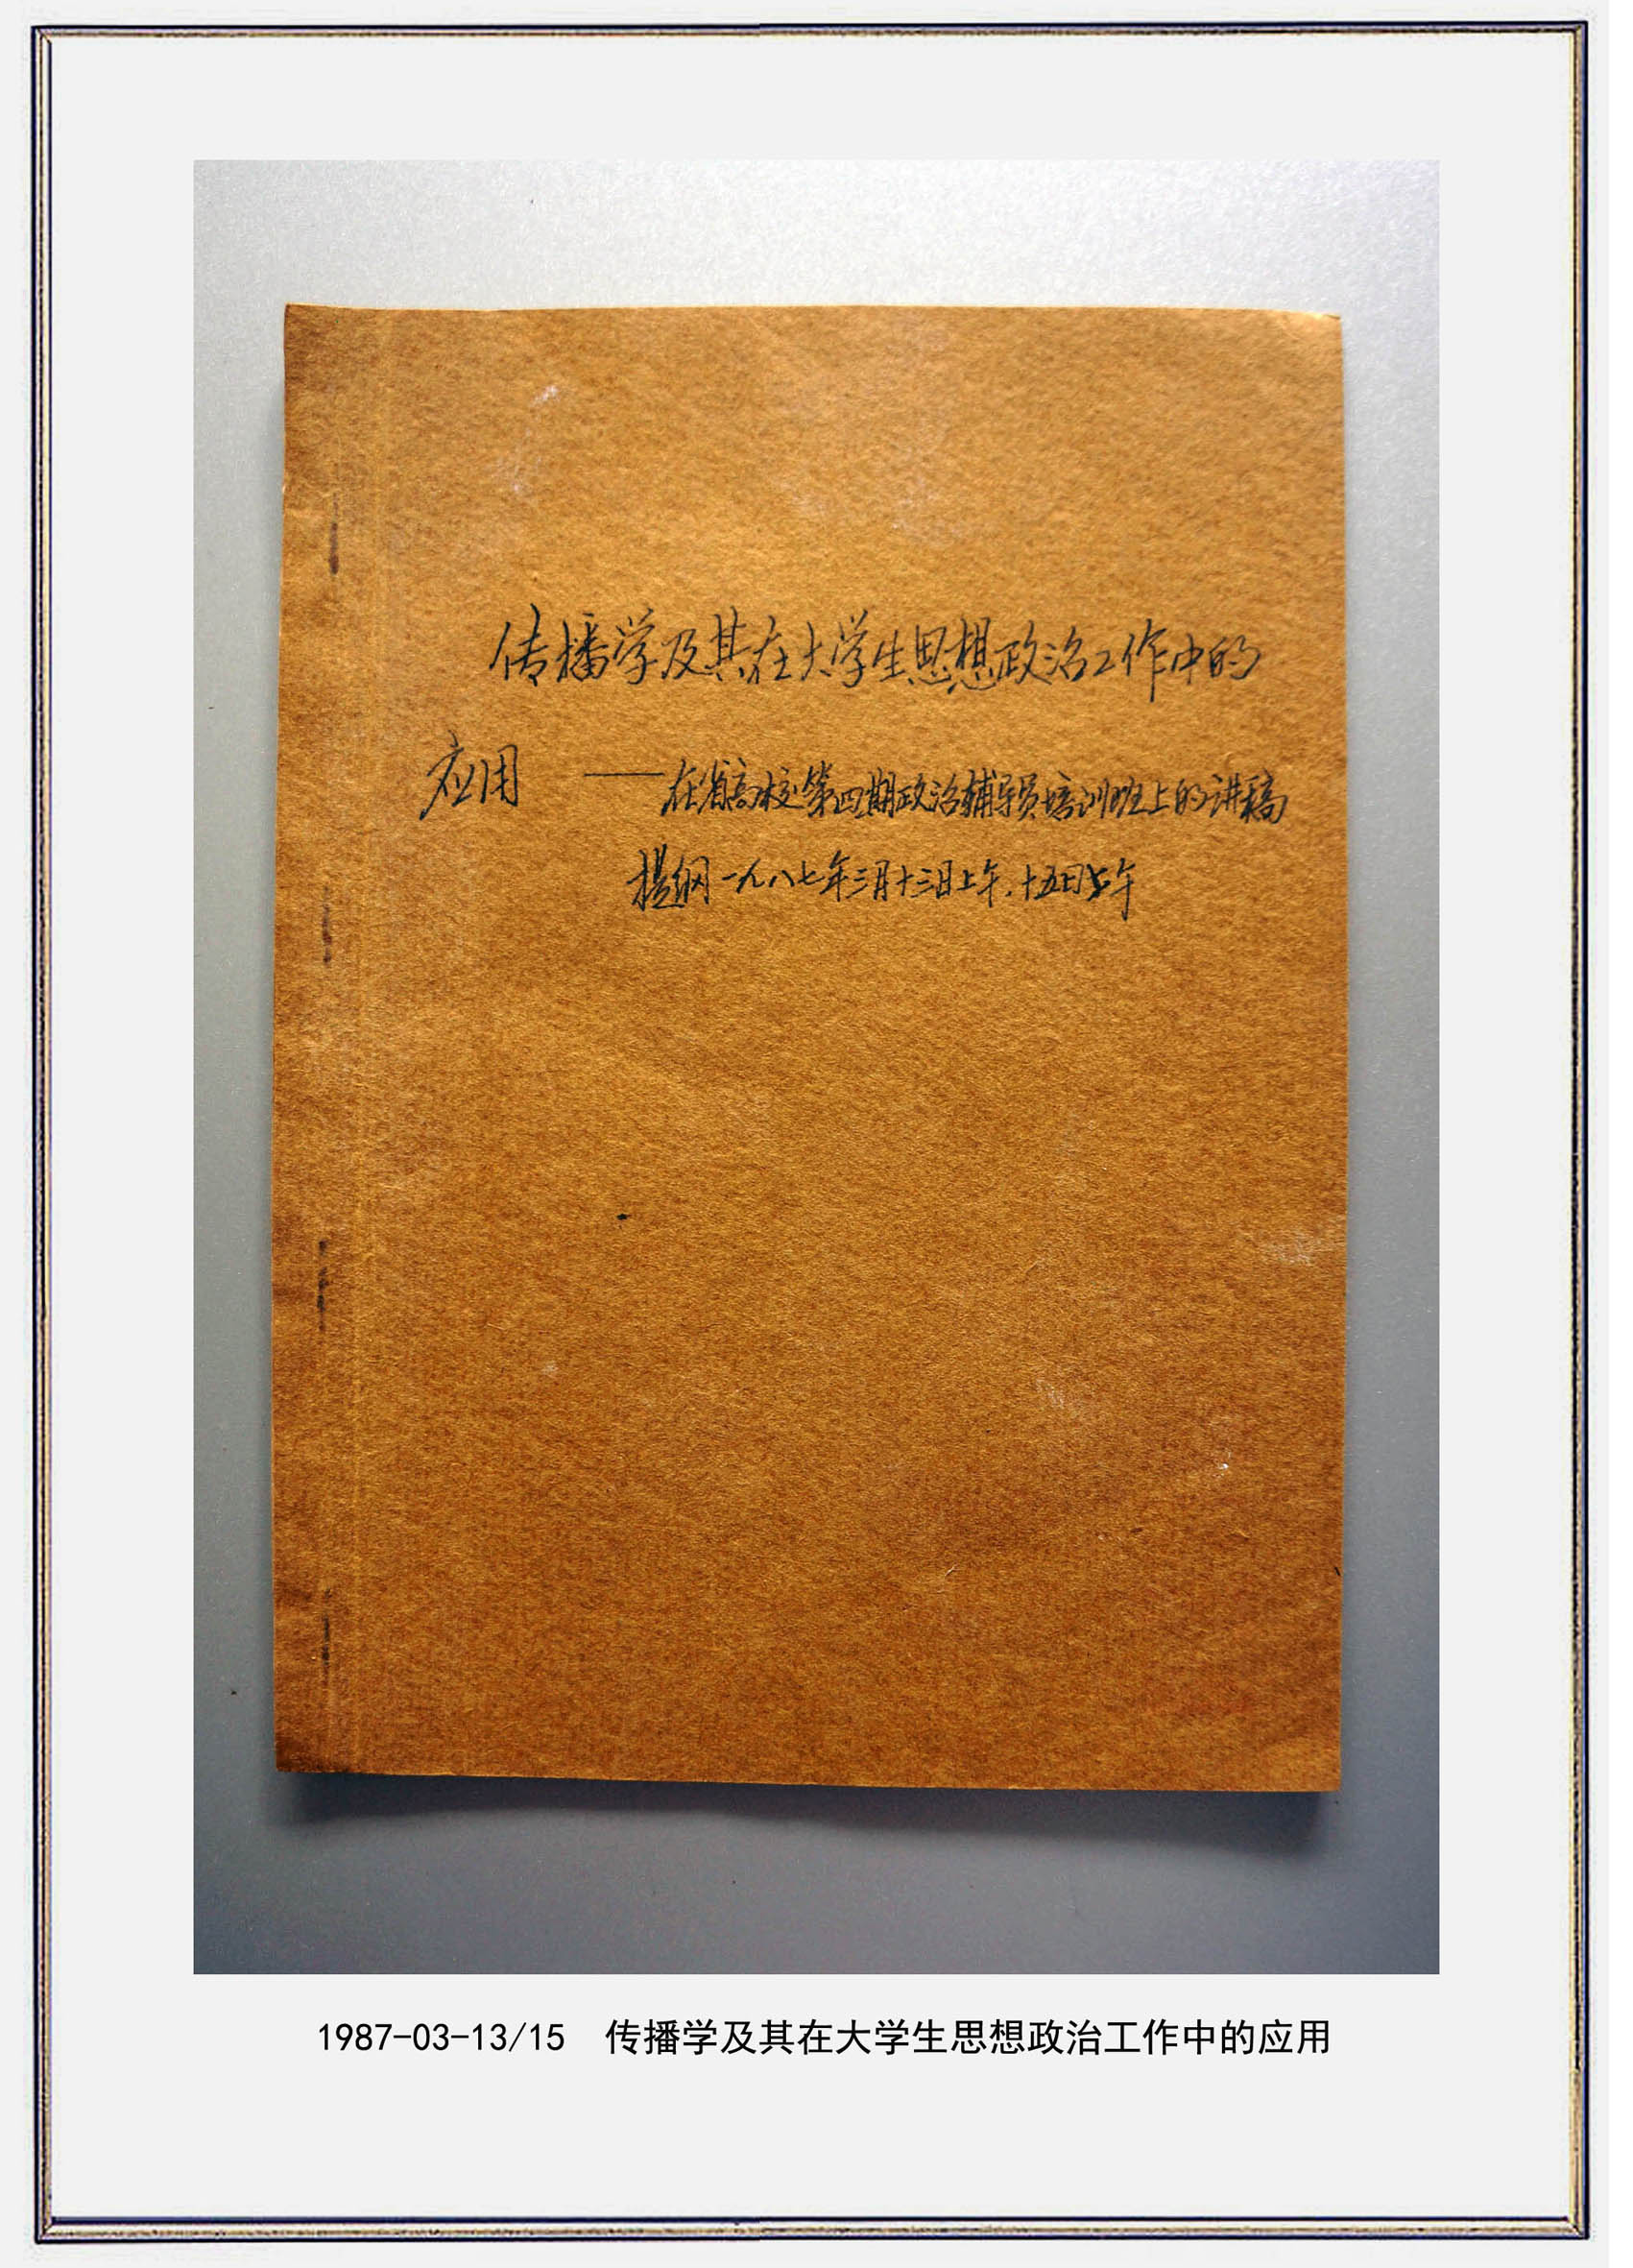 传播学及其在大学生思想政治工作中的
应用 ——在省高校第四期政治辅导员培训班上的讲稿
提纲 一九八七年三月十三日上午、十五日上午
1987-03-13/15 传播学及其在大学生思想政治工作中的应用